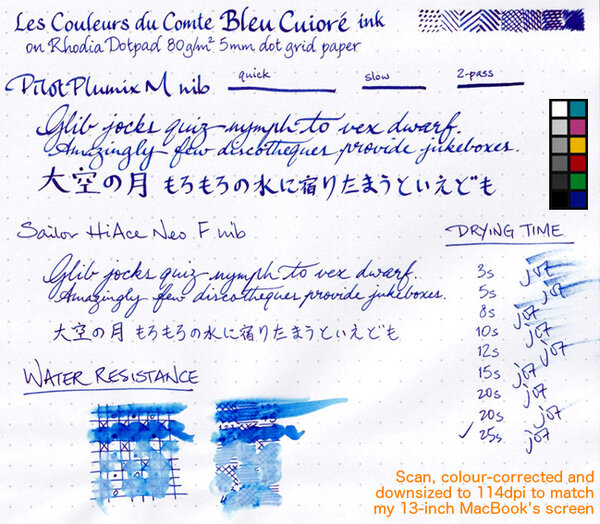 Les Couleurs du Comte Bleu Cuioré ink
on Rhodia Dotpad 80g/m² 5mm dot grid paper
Pilot Plumix M nib
quick
slow
2-pass
Glib jocks quiz nymph to vex dwarf.
Amazingly few discotheques provide jukeboxes.
大空の月 もろもろの水に宿りたまうといえども
Sailor HiAce Neo F nib
Glib jocks quiz nymph to vex dwarf.
Amazingly few discotheques provide jukeboxes.
大空の月 もろもろの水に宿りたまうといえども
DRYING TIME
3s jot
5s jot
8s jot
10s jot
12s jot
15s jot
20s jot
20s jot
✓ 25s jot
WATER RESISTANCE
Scan, colour-corrected and
downsized to 114dpi to match
my 13-inch MacBook's screen